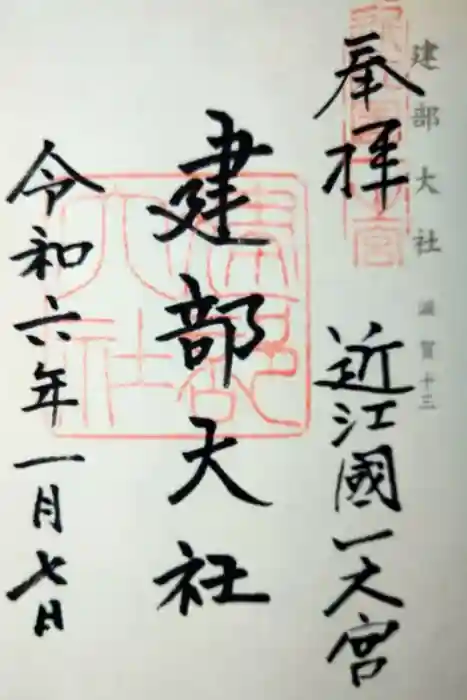 建部大社 滋賀十三
奉拝 近江國一大宮
建部大社
建部
大社
令和六年一月七日